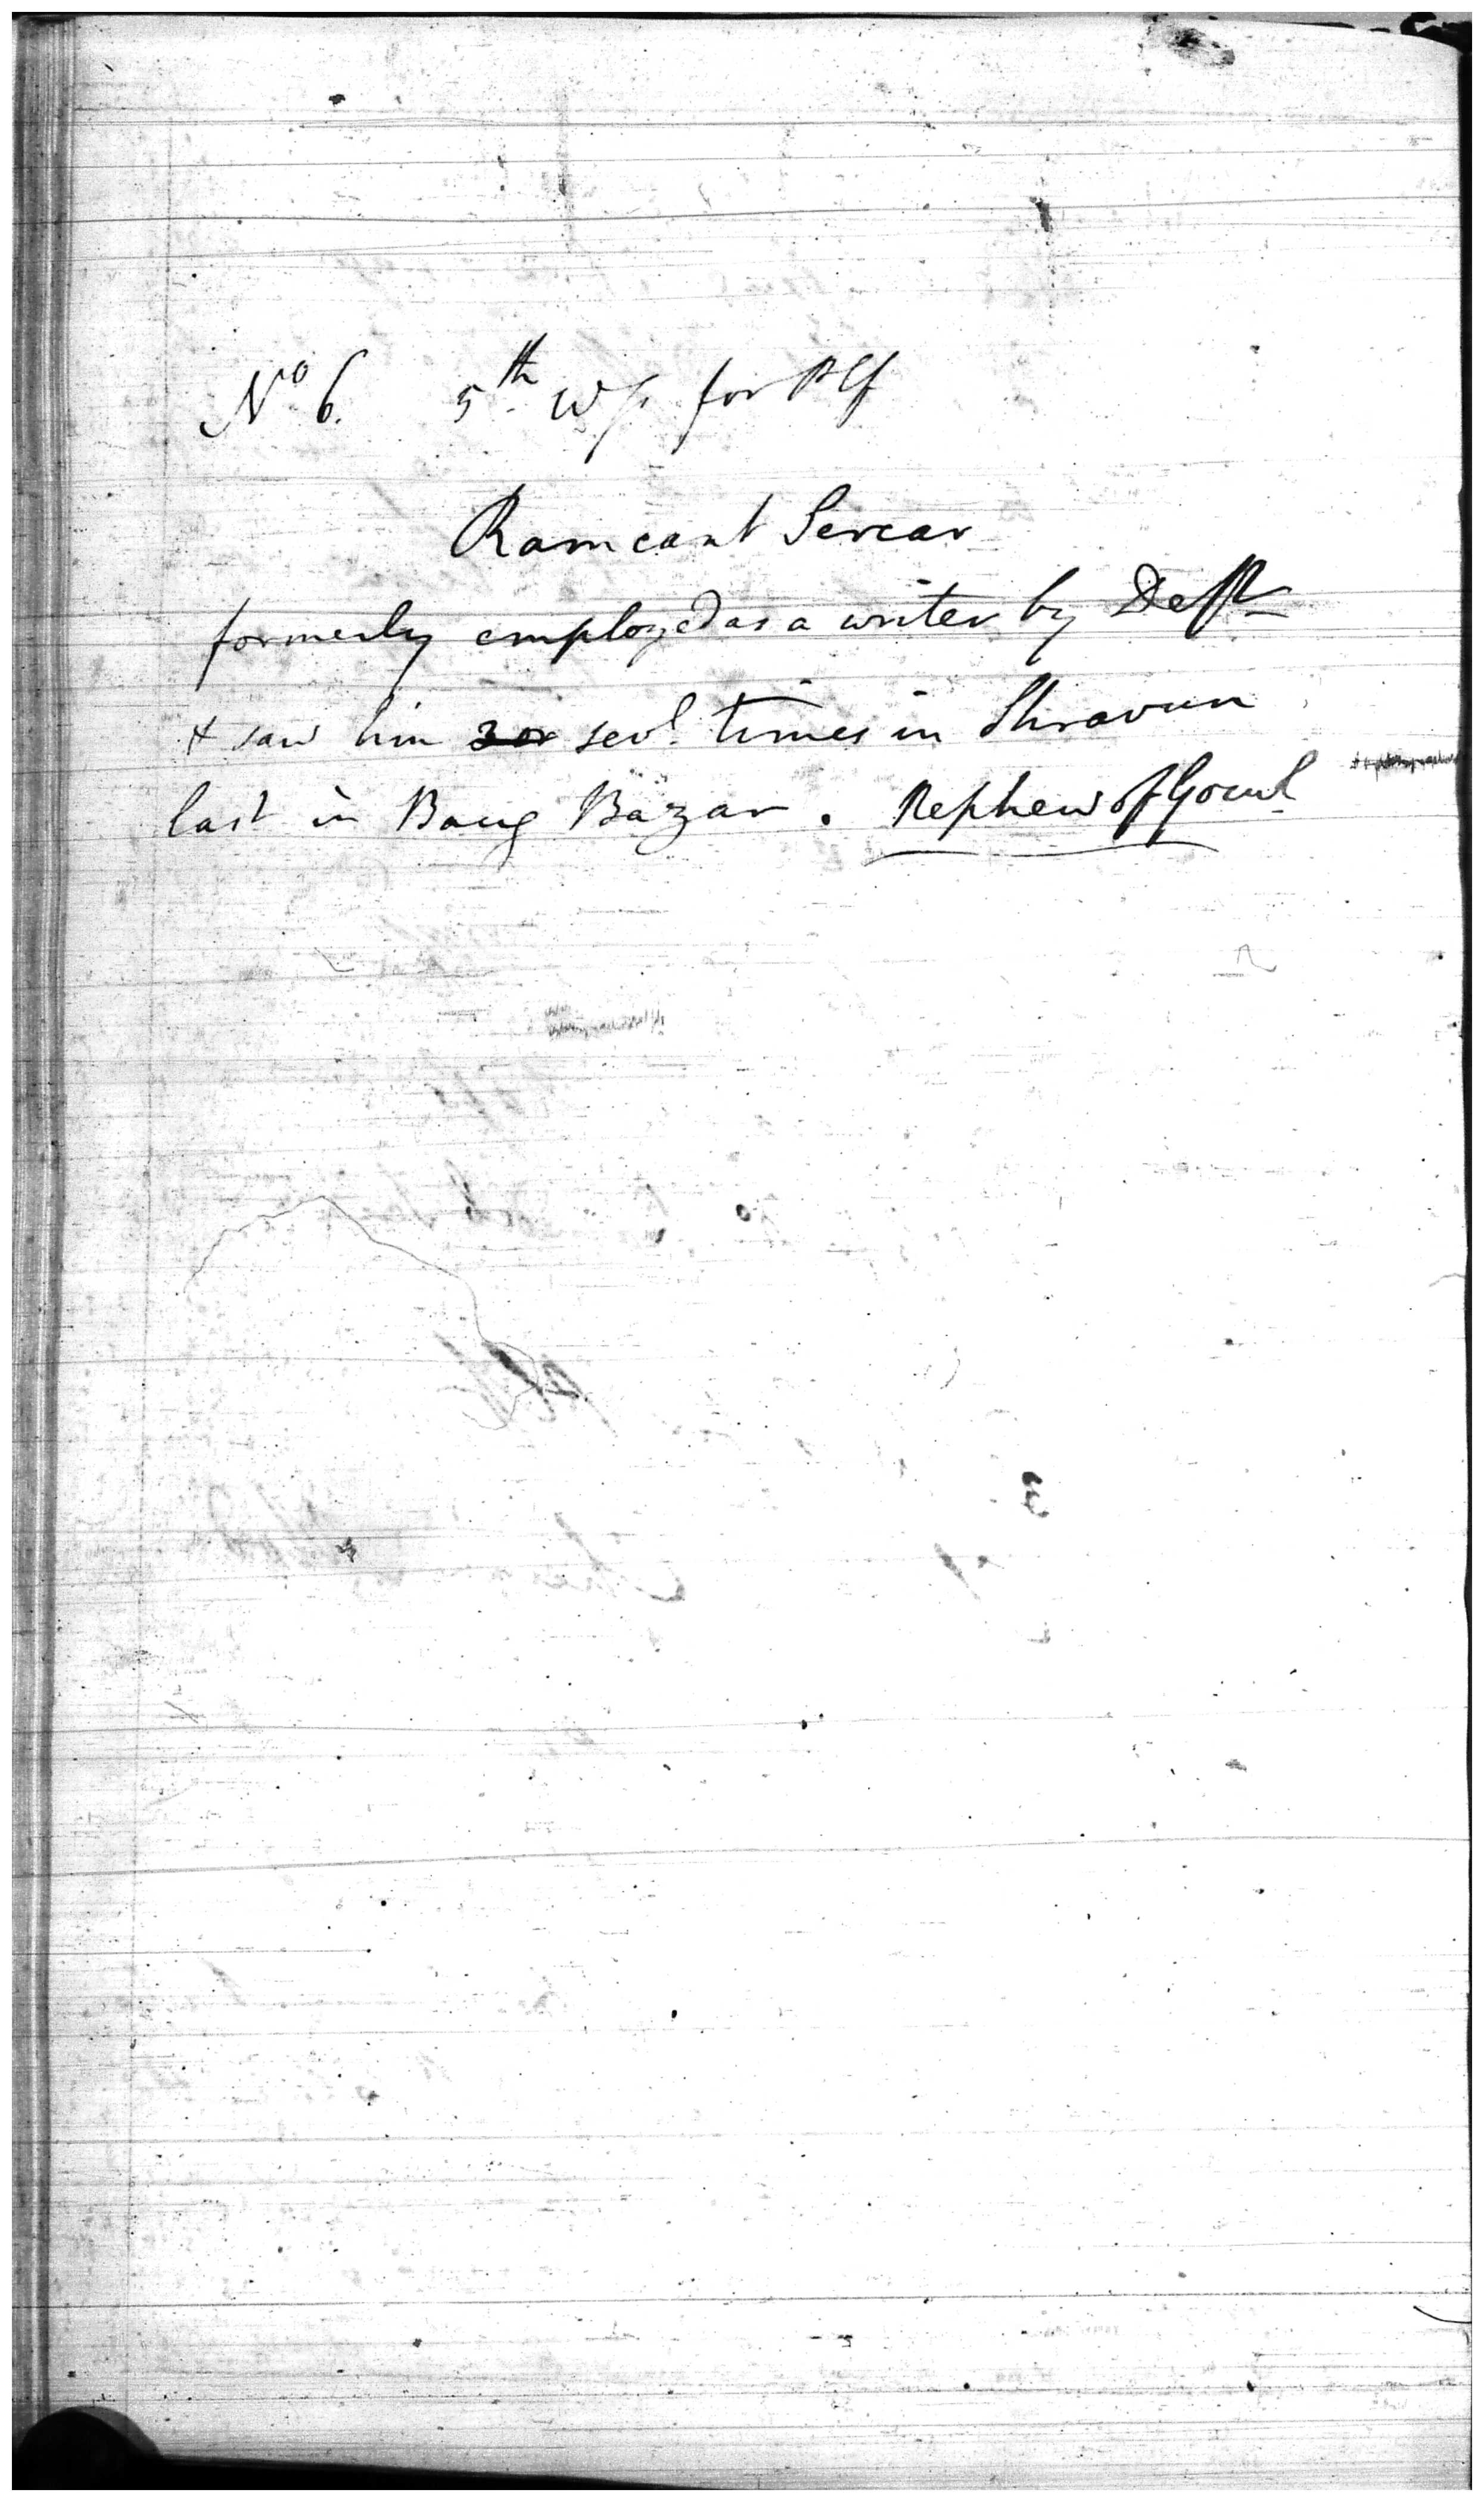 No 6. 5th W/s. for Plf
Ramcant Sercar
formerly employed as a writer by Deft
& saw him sevl. times in Shravun
last in Baug Bazar. Nephew of Gocul